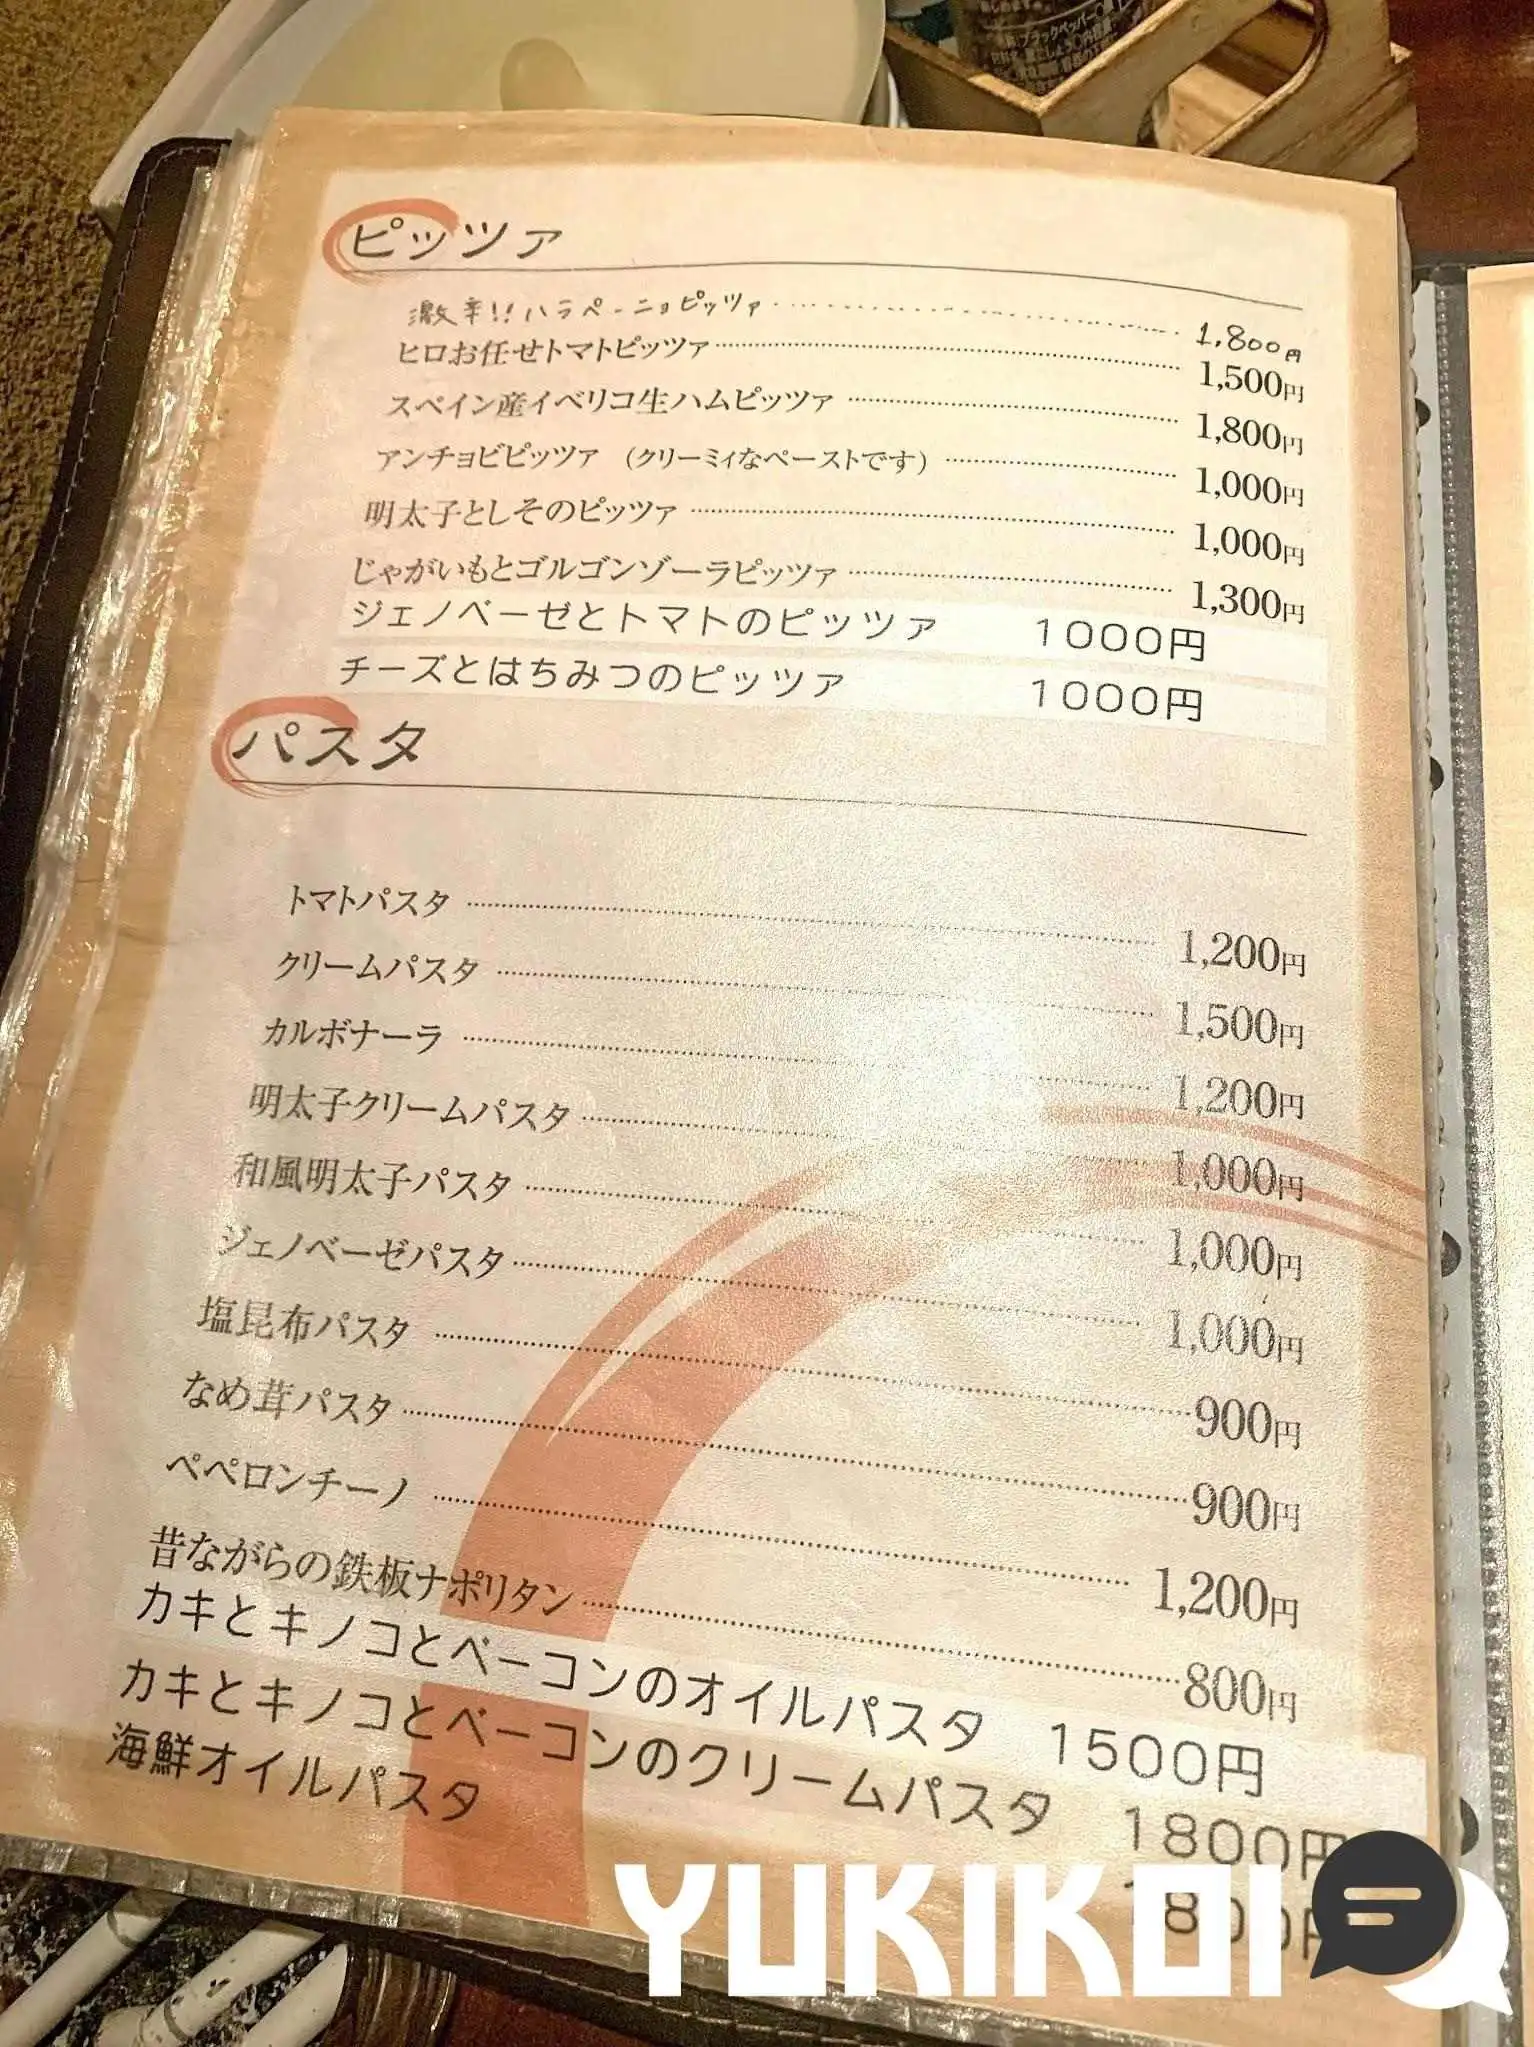 ブラックペッパー
ピッツァ
激辛!!ハラペーニョピッツァ 1,800円
ヒロお任せトマトピッツァ 1,500円
スペイン産イベリコ生ハムピッツァ 1,800円
アンチョビピッツァ (クリーミィなペーストです) 1,000円
明太子としそのピッツァ 1,000円
じゃがいもとゴルゴンゾーラピッツァ 1,300円
ジェノベーゼとトマトのピッツァ 1000円
チーズとはちみつのピッツァ 1000円
パスタ
トマトパスタ 1,200円
クリームパスタ 1,500円
カルボナーラ 1,200円
明太子クリームパスタ 1,000円
和風明太子パスタ 1,000円
ジェノベーゼパスタ 1,000円
塩昆布パスタ 900円
なめ茸パスタ 900円
ペペロンチーノ 1,200円
昔ながらの鉄板ナポリタン 800円
カキとキノコとベーコンのオイルパスタ 1500円
カキとキノコとベーコンのクリームパスタ 1800円
海鮮オイルパスタ
YUKIKOI